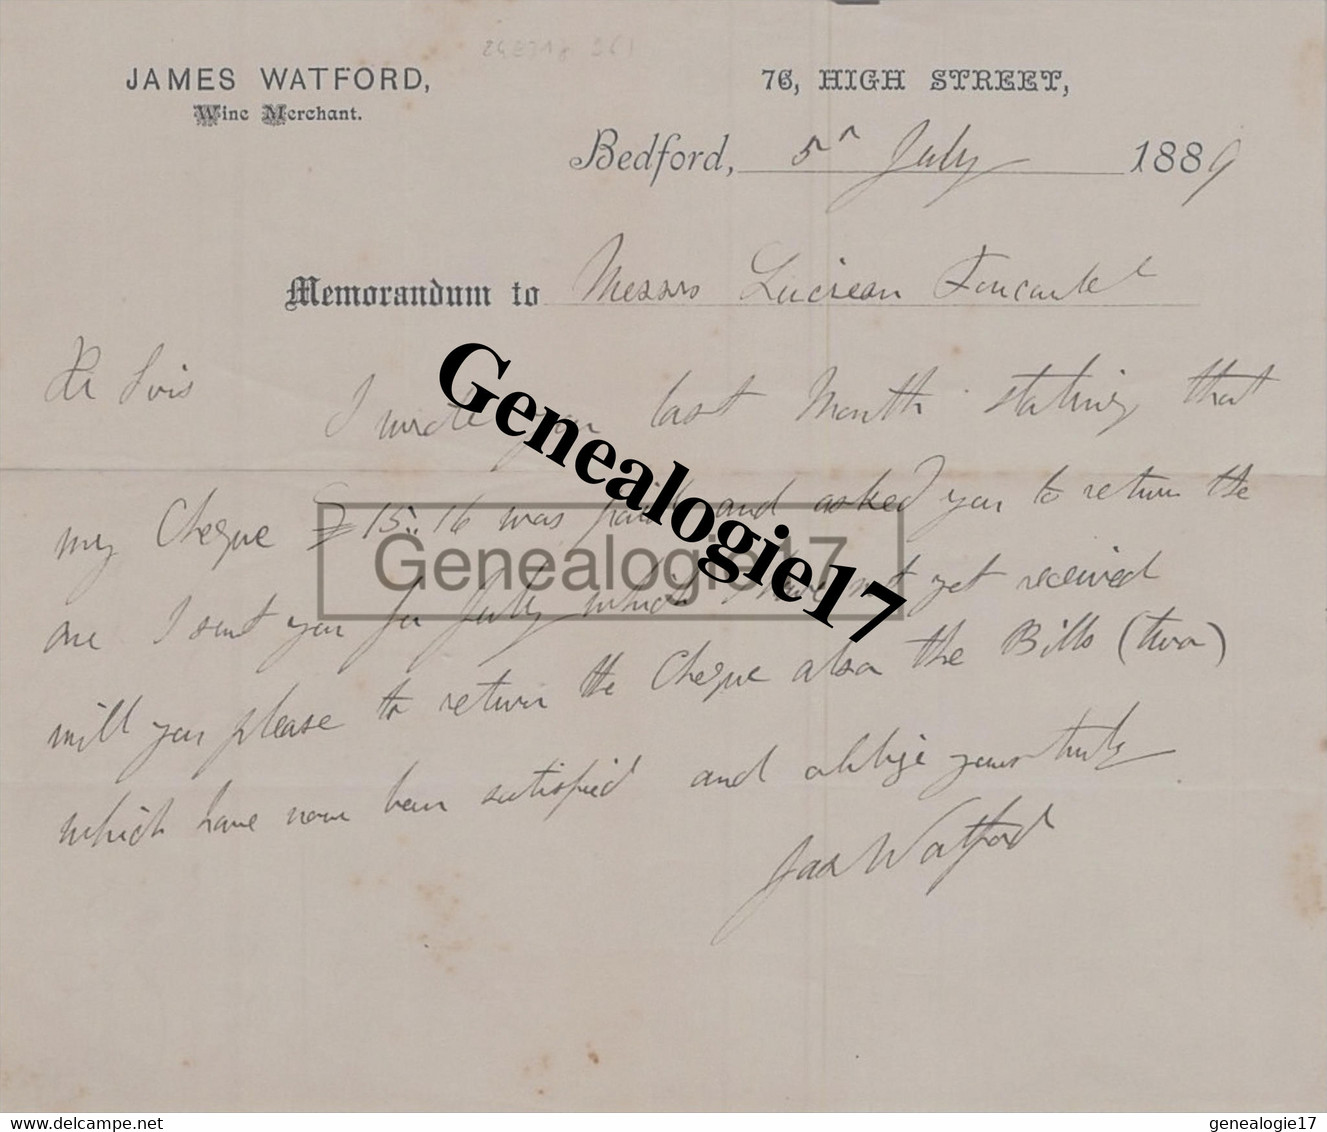 JAMES WATFORD,
Wine Merchant.
76, HIGH STREET,
Bedford, 5th July 1889
Memorandum to Messrs Lucien Foucauld
Dr Sirs I wrote you last Month stating that
my Cheque £ 15.. 16 was paid and asked you to return the
one I sent you for July which I have not yet received
will you please to return the Cheque also the Bills (two)
which have now been satisfied and oblige yours truly
Jas Watford
Genealogie17
Genealogie17
www.delcampe.net
genealogie17